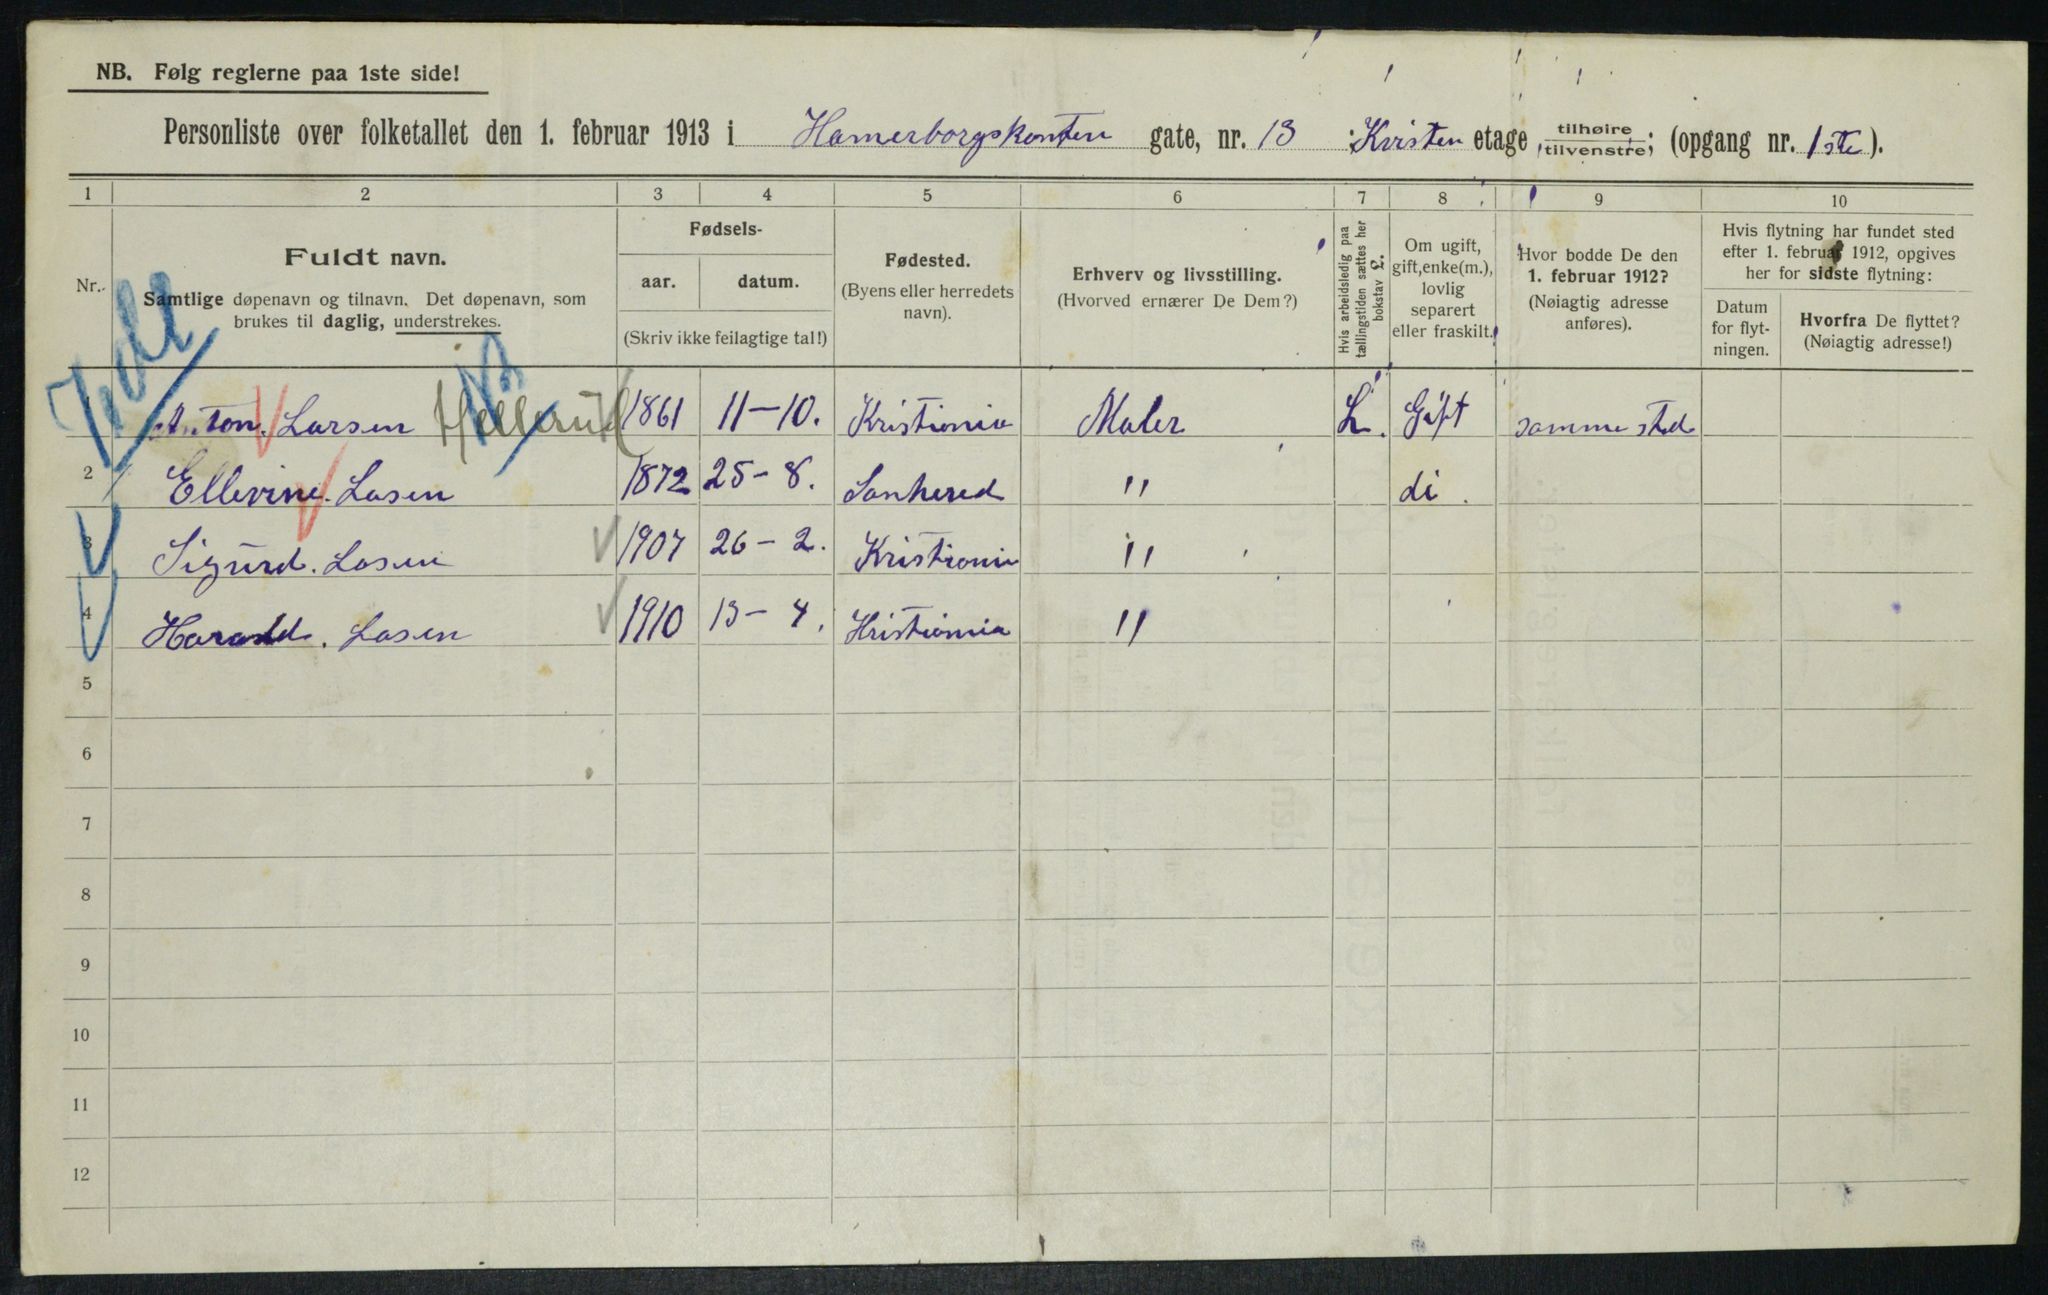 NB. Følg reglerne paa 1ste side!
Personliste over folketallet den 1. februar 1913 i Hamerborgskanten gate, nr. 13 : Kvisten etage, tilhøire, tilvenstre; (opgang nr. 1ste).
1 2 3 4 5 6 7 8 9 10
Nr.
Fuldt navn.
Samtlige døpenavn og tilnavn. Det døpenavn, som
brukes til daglig, understrekes.
Fødsels-
aar. datum.
(Skriv ikke feilagtige tal!)
Fødested.
(Byens eller herredets
navn).
Erhverv og livsstilling.
(Hvorved ernærer De Dem?)
Hvis arbeidsledig paa
tællingstiden sættes her
bokstav L.
Om ugift,
gift, enke(m.),
lovlig
separert
eller fraskilt.
Hvor bodde De den
1. februar 1912?
(Nøiagtig adresse
anføres).
Hvis flytning har fundet sted
efter 1. februar 1912, opgives
her for sidste flytning:
Datum
for flyt-
ningen.
Hvorfra De flyttet?
(Nøiagtig adresse!)
1 Anton. Larsen 1861 11-10. Kristiania Maler L. Gift samme sted
2 Ellevine. Lasen 1872 25-8. Sanhered " di.
3 Sigurd. Lasen 1907 26-2. Kristiania "
4 Harald. Lasen 1910 13-4. Kristiania "
5
6
7
8
9
10
11
12